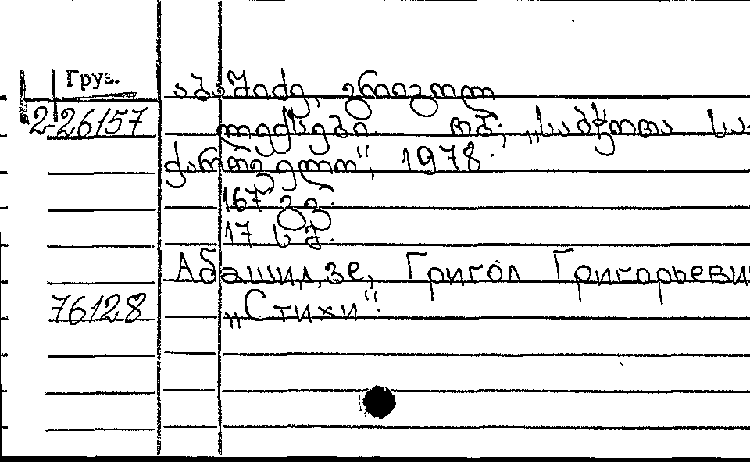 Груз.
აბაშიძე, გრიგოლ
2-26157 ლექსები. თბ., „საბჭოთა სა-
ქართველო“, 1978.
167 გვ.
17 სმ.
Абашидзе, Григол Григорьеви
76128 „Стихи“.